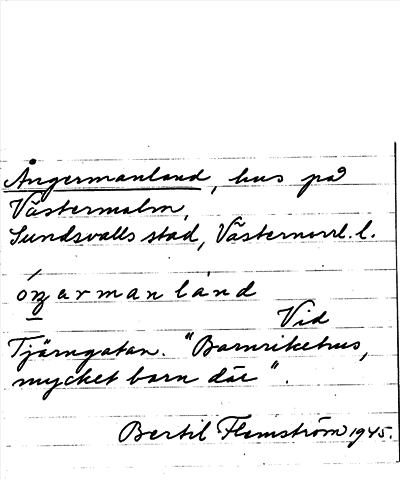 Ångermanland, hus på
Västermalm,
Sundsvalls stad, Västernorrl. l.
óŋармanlànd
Vid
Tjärngatan. "Barnrikehus,
mycket barn där".
Bertil Flemström 1945.